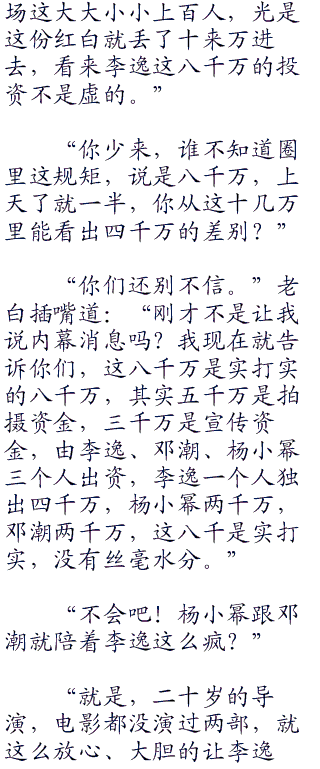 场这大大小小上百人，光是
这份红白就丢了十来万进
去，看来李逸这八千万的投
资不是虚的。”
“你少来，谁不知道圈
里这规矩，说是八千万，上
天了就一半，你从这十几万
里能看出四千万的差别？”
“你们还别不信。”老
白插嘴道：“刚才不是让我
说内幕消息吗？我现在就告
诉你们，这八千万是实打实
的八千万，其实五千万是拍
摄资金，三千万是宣传资
金，由李逸、邓潮、杨小幂
三个人出资，李逸一个人独
出四千万，杨小幂两千万，
邓潮两千万，这八千是实打
实，没有丝毫水分。”
“不会吧！杨小幂跟邓
潮就陪着李逸这么疯？”
“就是，二十岁的导
演，电影都没演过两部，就
这么放心、大胆的让李逸